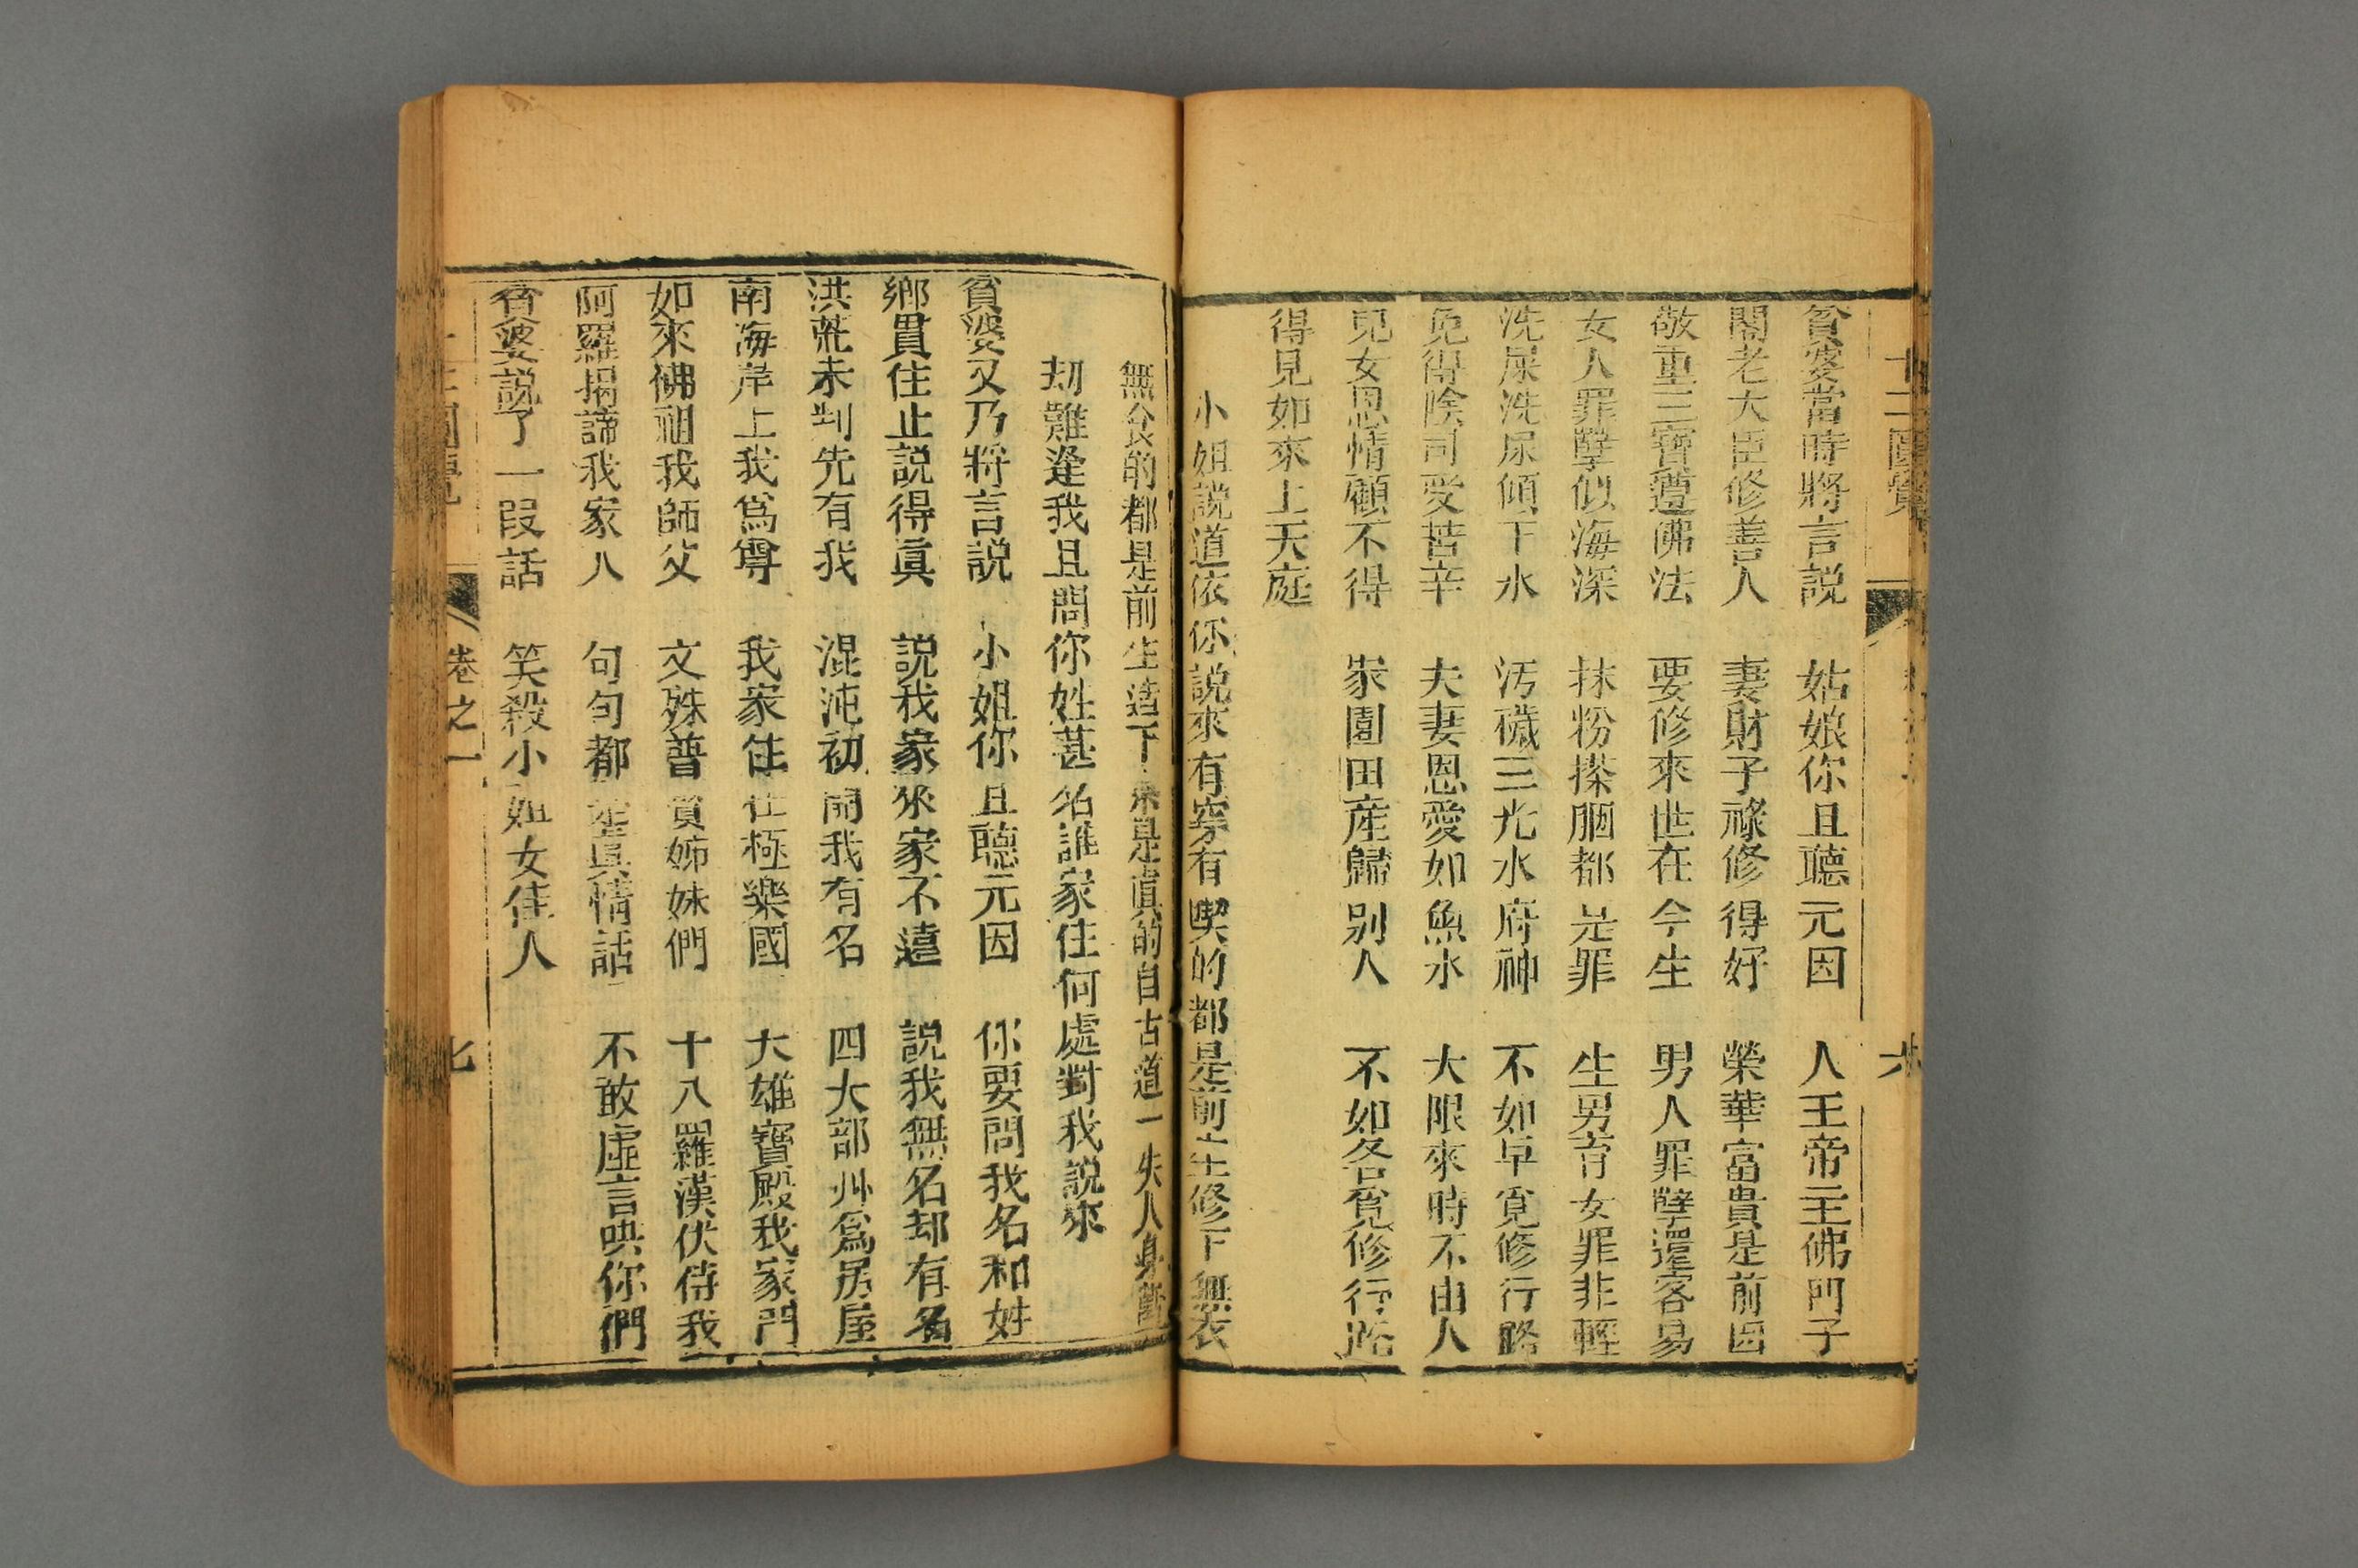 十二圓覺 六
貧婆當時將言説 姑娘你且聽元因 人王帝主佛門子
閣老大臣修善人 妻財子祿修得好 榮華富貴是前因
敬重三寶遵佛法 要修來世在今生 男人罪孽還容易
女人罪孽似海深 抹粉搽胭都是罪 生男育女罪非輕
洗屎洗尿傾下水 汚穢三光水府神 不如早覓修行路
免得陰司受苦辛 夫妻恩愛如魚水 大限來時不由人
兒女恩情顧不得 家園田産歸别人 不如各覓修行路
得見如來上天庭
小姐説道依你説來有穿有喫的都是前生修下無衣
無食的都是前生造下來是真的自古道一失人身萬
刧難逢我且問你姓甚名誰家住何處對我説來
貧婆又乃將言説 小姐你且聽元因 你要問我名和姓
鄉貫住止説得眞 説我家來家不遠 説我無名却有名
洪荒未判先有我 混沌初開我有名 四大部州爲房屋
南海岸上我爲尊 我家住在極樂國 大雄寶殿我家門
如來佛祖我師父 文殊普賢姊妹們 十八羅漢伏侍我
阿羅揭諦我家人 句句都是真情話 不敢虛言哄你們
貧婆説了一段話 笑殺小姐女佳人
十二圓覺 卷之一 七